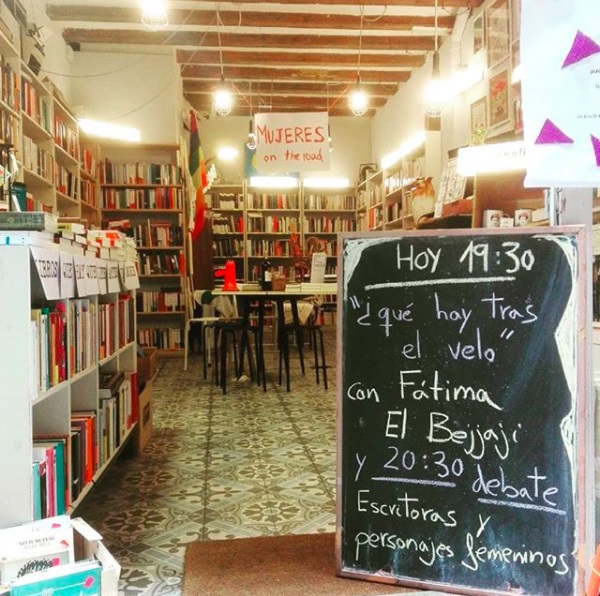 MUJERES
on the road
LIBROS
HOY 19:30
"¿qué hay tras
el velo"
con Fátima
El Bejjaji
y 20:30 debate
Escritoras y
personajes femeninos